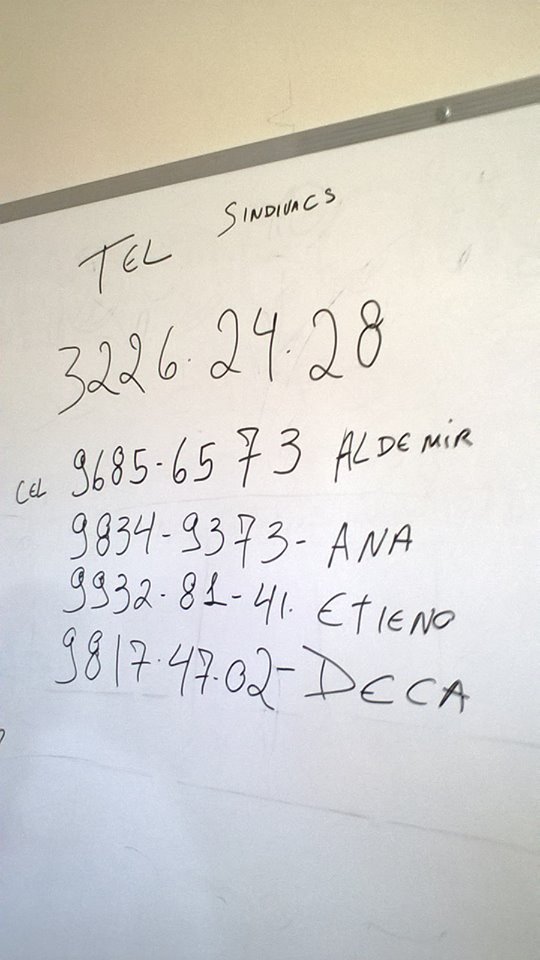 TEL SINDIVACS
3226.24.28
CEL 9685-6573 ALDEMIR
9834-9373- ANA
9932-81-41. ETIENO
9817.47.02- DECA